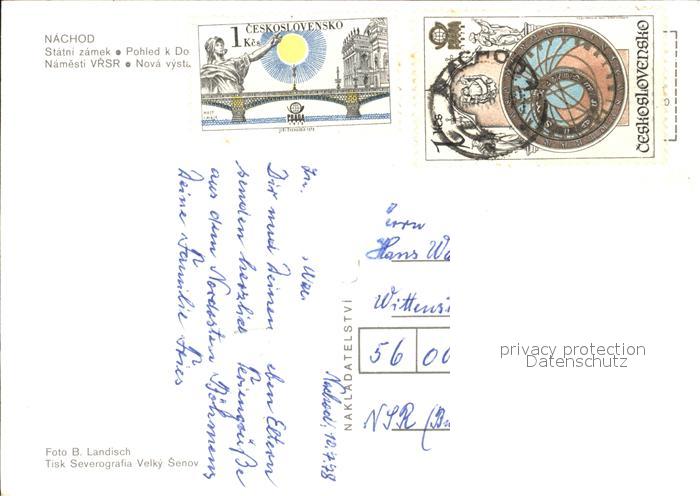 NÁCHOD
Státní zámek ● Pohled k Do
Náměstí VŘSR ● Nová výstu
1 Kčs
ČESKOSLOVENSKO
PRAGA
1 Kčs
ČESKOSLOVENSKO
PRAGA
NÁCHOD
Náchod, 10.7.78
Dir und Deinen lieben Eltern
senden herzliche Feriengrüße
aus dem Nordosten Böhmens
Deine Familie Fries
NAKLADATELSTVÍ
Herrn
Hans Wa
Wittensi
56 00
NSR (Bu
privacy protection
Datenschutz
Foto B. Landisch
Tisk Severografia Velký Šenov